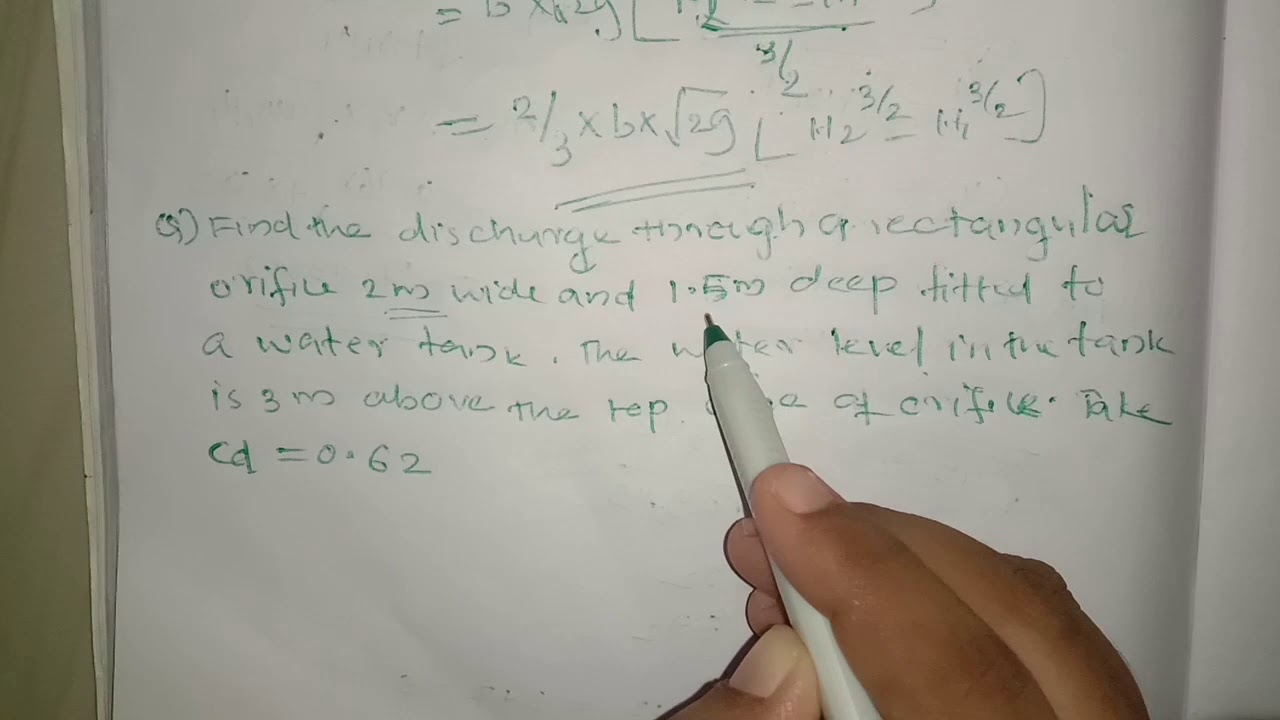 = b × √2g [
3/2
= 2/3 × b × √2g [ H2^3/2 - H1^3/2 ]
Q) Find the discharge through a rectangular
orifice 2m wide and 1.5m deep fitted to
a water tank. The water level in the tank
is 3m above the top of orifice. Take
cd = 0.62